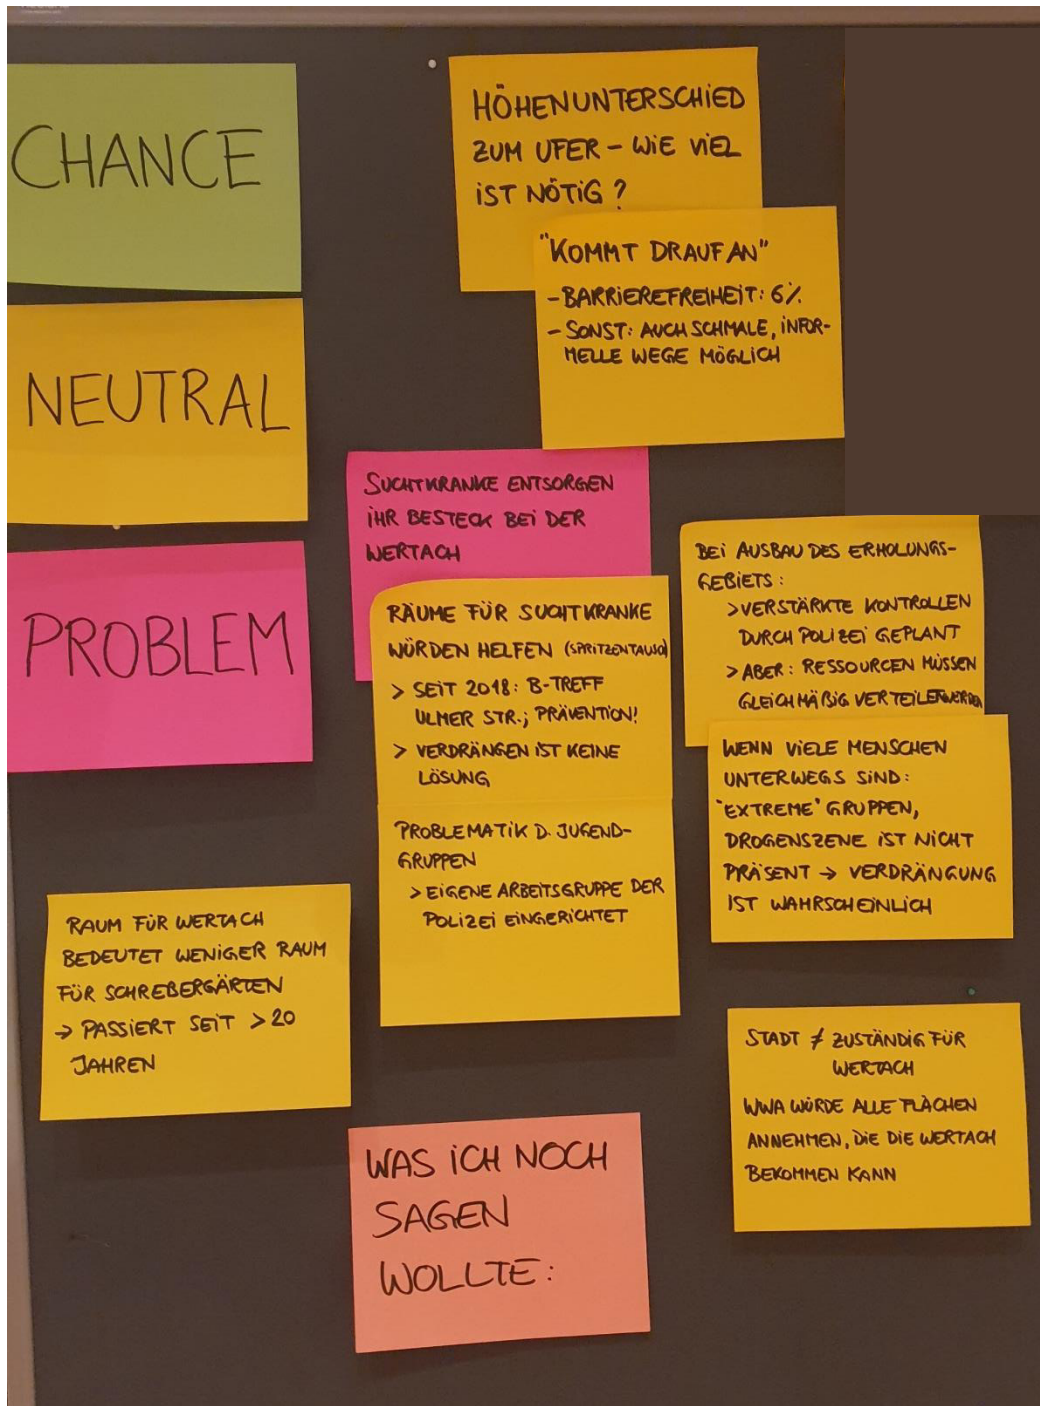 CHANCE
NEUTRAL
PROBLEM
HÖHENUNTERSCHIED
ZUM UFER – WIE VIEL
IST NÖTIG ?
"KOMMT DRAUF AN"
- BARRIEREFREIHEIT: 6%
- SONST: AUCH SCHMALE, INFOR-
MELLE WEGE MÖGLICH
SUCHTKRANKE ENTSORGEN
IHR BESTECK BEI DER
WERTACH
RÄUME FÜR SUCHTKRANKE
WÜRDEN HELFEN (SPRITZENTAUSCH)
> SEIT 2018: B-TREFF
ULMER STR.; PRÄVENTION!
> VERDRÄNGEN IST KEINE
LÖSUNG
PROBLEMATIK D. JUGEND-
GRUPPEN
> EIGENE ARBEITSGRUPPE DER
POLIZEI EINGERICHTET
BEI AUSBAU DES ERHOLUNGS-
GEBIETS :
> VERSTÄRKTE KONTROLLEN
DURCH POLIZEI GEPLANT
> ABER: RESSOURCEN MÜSSEN
GLEICHMÄßIG VERTEILT WERDEN
WENN VIELE MENSCHEN
UNTERWEGS SIND:
"EXTREME" GRUPPEN,
DROGENSZENE IST NICHT
PRÄSENT → VERDRÄNGUNG
IST WAHRSCHEINLICH
RAUM FÜR WERTACH
BEDEUTET WENIGER RAUM
FÜR SCHREBERGÄRTEN
→ PASSIERT SEIT > 20
JAHREN
STADT ≠ ZUSTÄNDIG FÜR
WERTACH
WWA WÜRDE ALLE FLÄCHEN
ANNEHMEN, DIE DIE WERTACH
BEKOMMEN KANN
WAS ICH NOCH
SAGEN
WOLLTE: